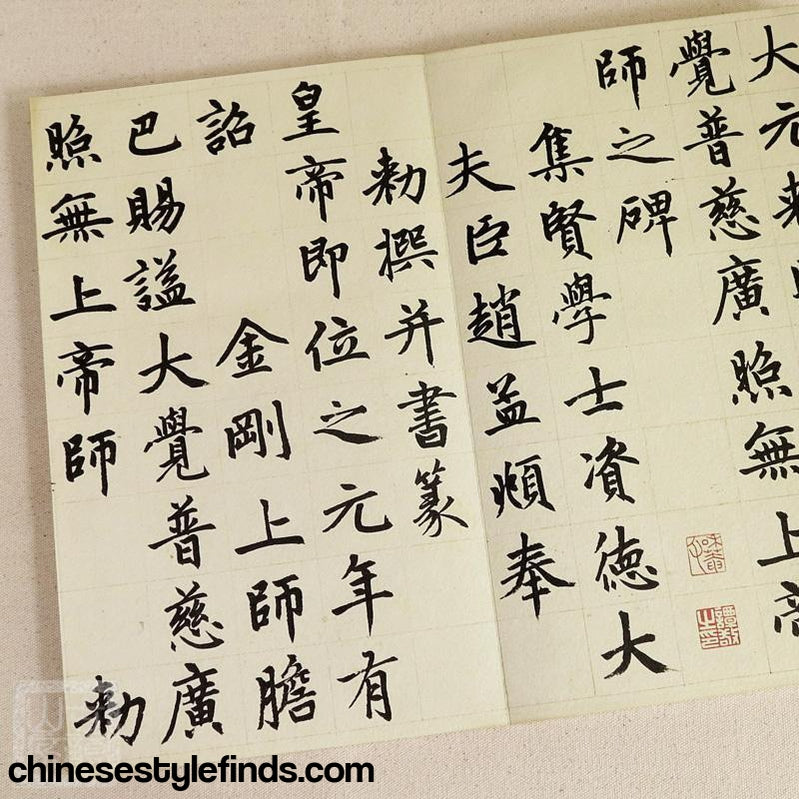 大元勅
覺普慈廣照無上帝
師之碑
集賢學士資德大
夫臣趙孟頫奉
勅撰并書篆
皇帝即位之元年有
詔金剛上師膽
巴賜謚大覺普慈廣
照無上帝師勅
chinesestylefinds.com